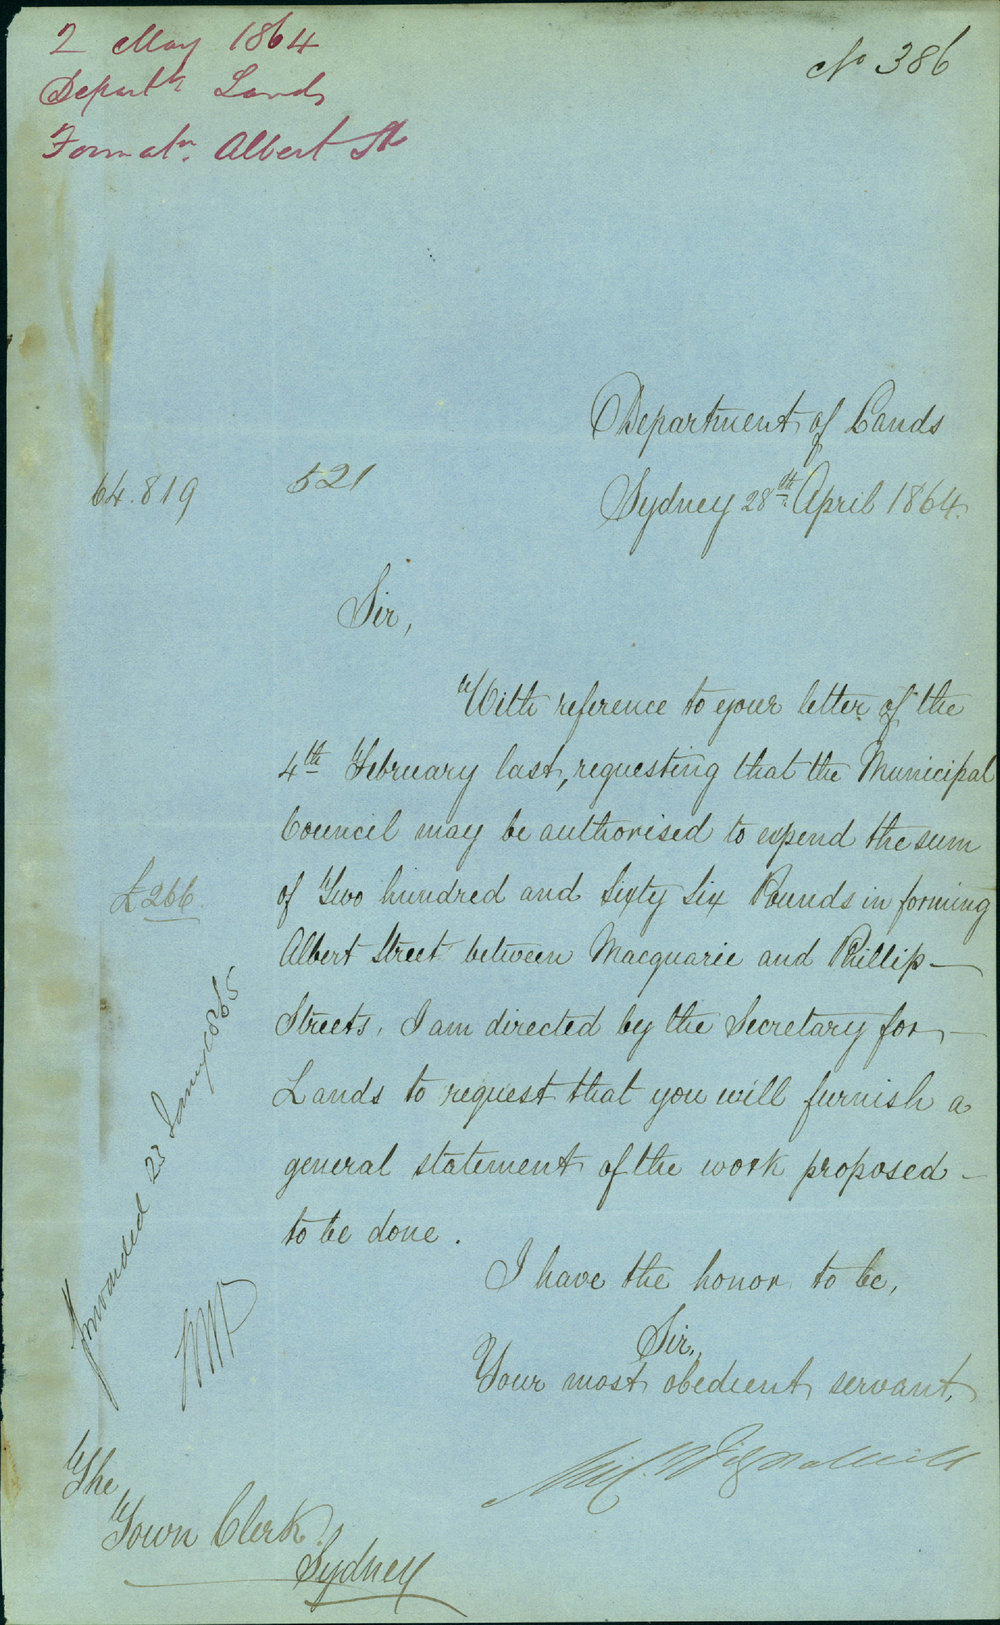 2 May 1864
Departt Lands
Formatn. Albert St
No 386
Department of Lands
64.819
521
Sydney 28th April 1864.
Sir,
With reference to your letter of the
4th February last, requesting that the Municipal
Council may be authorised to expend the sum
£266.
of Two hundred and Sixty Six Pounds in forming
Albert Street between Macquarie and Phillip
Streets, I am directed by the Secretary for
Lands to request that you will furnish a
general statement of the work proposed
to be done.
Forwarded 23 January 1865
I have the honor to be,
Sir,
Your most obedient servant,
The
Town Clerk
Sydney